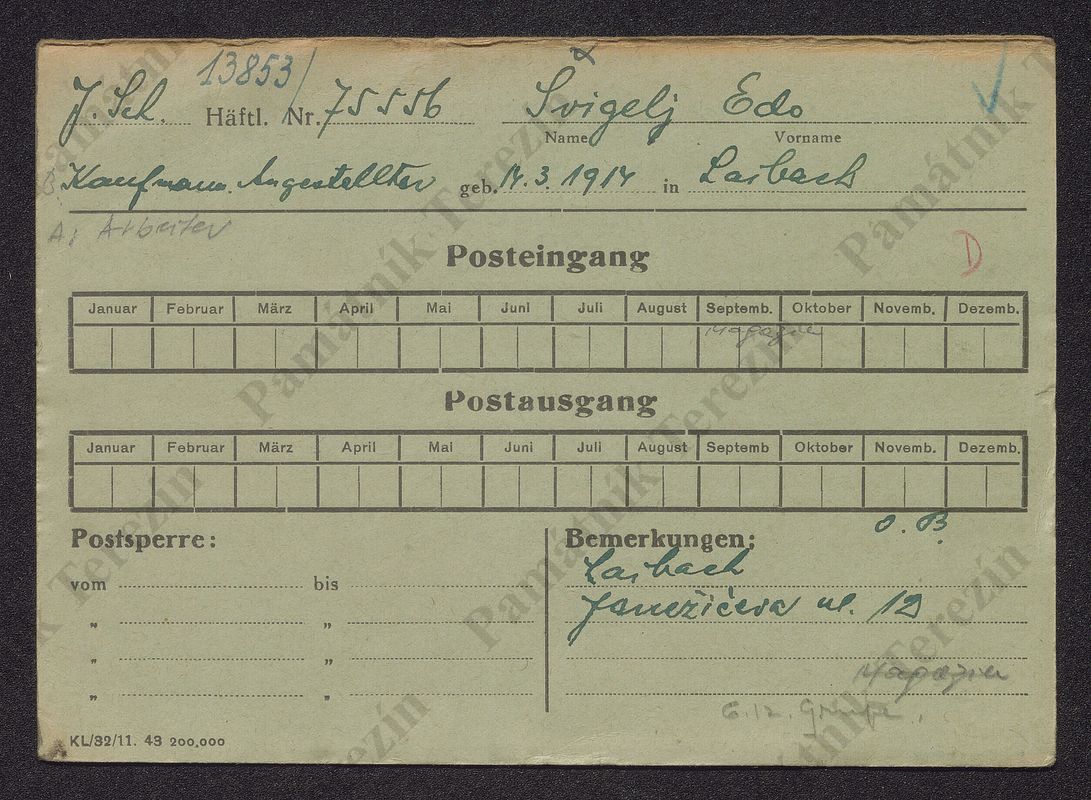 13853
J. Sch. Häftl. Nr. 75556 Švigelj Edo
Name Vorname
Kaufmann. Angestellter geb. 14. 3. 1914 in Laibach
A: Arbeiter
D
Posteingang
Januar Februar März April Mai Juni Juli August Septemb. Oktober Novemb. Dezemb.
Magazin
Postausgang
Januar Februar März April Mai Juni Juli August Septemb Oktober Novemb. Dezemb.
Postsperre: Bemerkungen: O. B.
vom bis Laibach
" " Janežičeva ul. 12
" "
" " Magazin
Gruppe
KL/32/11. 43 200,000
Památník Terezín